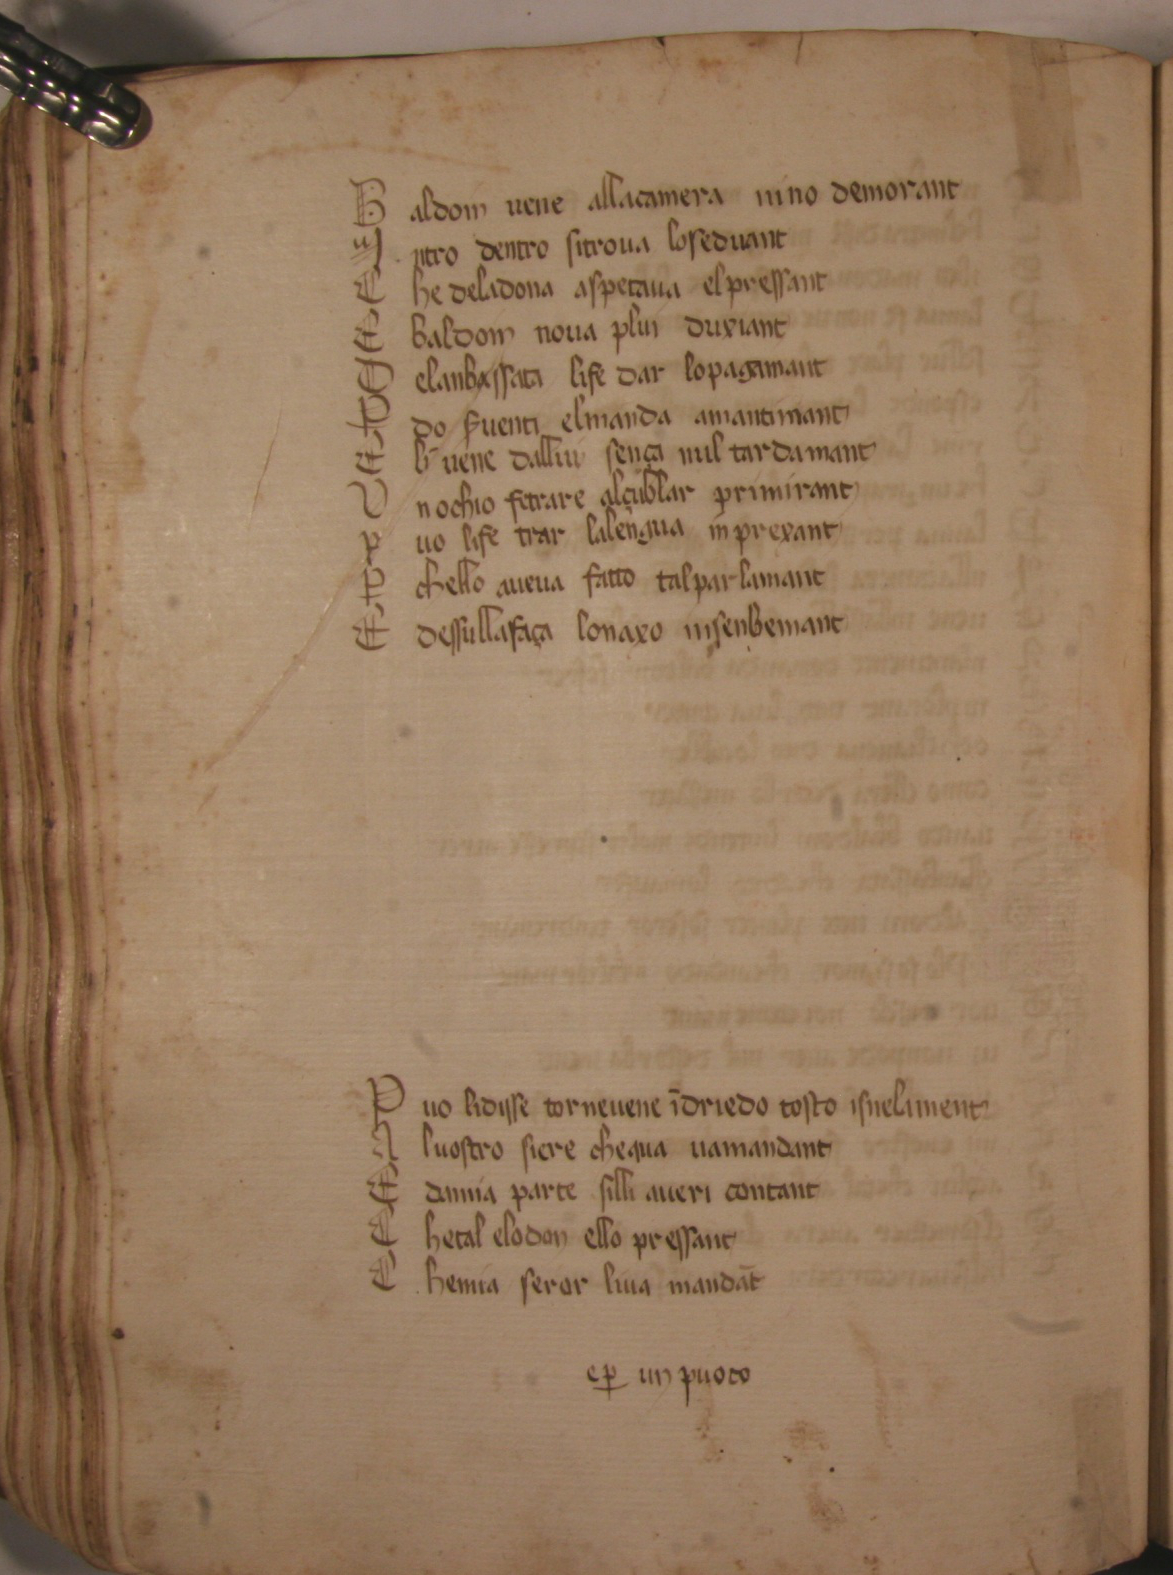 B aldoin vene allacamera nino demorant
I ntro dentro sitrova loseduant
C he deladona aspetava elpressant
E baldoin nova plui duxiant
G elanbassata life dar lopaganant
T do fventi elmanda amantinant
E b vene dallui sença nul tardamant
V nochio fetrare alçublar primirant
p uo life trar lalengua inprexant
P chello aveva fatto talparlamant
E dessullafaça lonaxo insenbemant
P uo lidisse tornevene īdriedo tosto isnelament
A luostro siere chequa vamandant
E damia parte silli averi contant
C hetal elodon ello pressant
C hemia seror liva mandāt
ep̱ un puoco